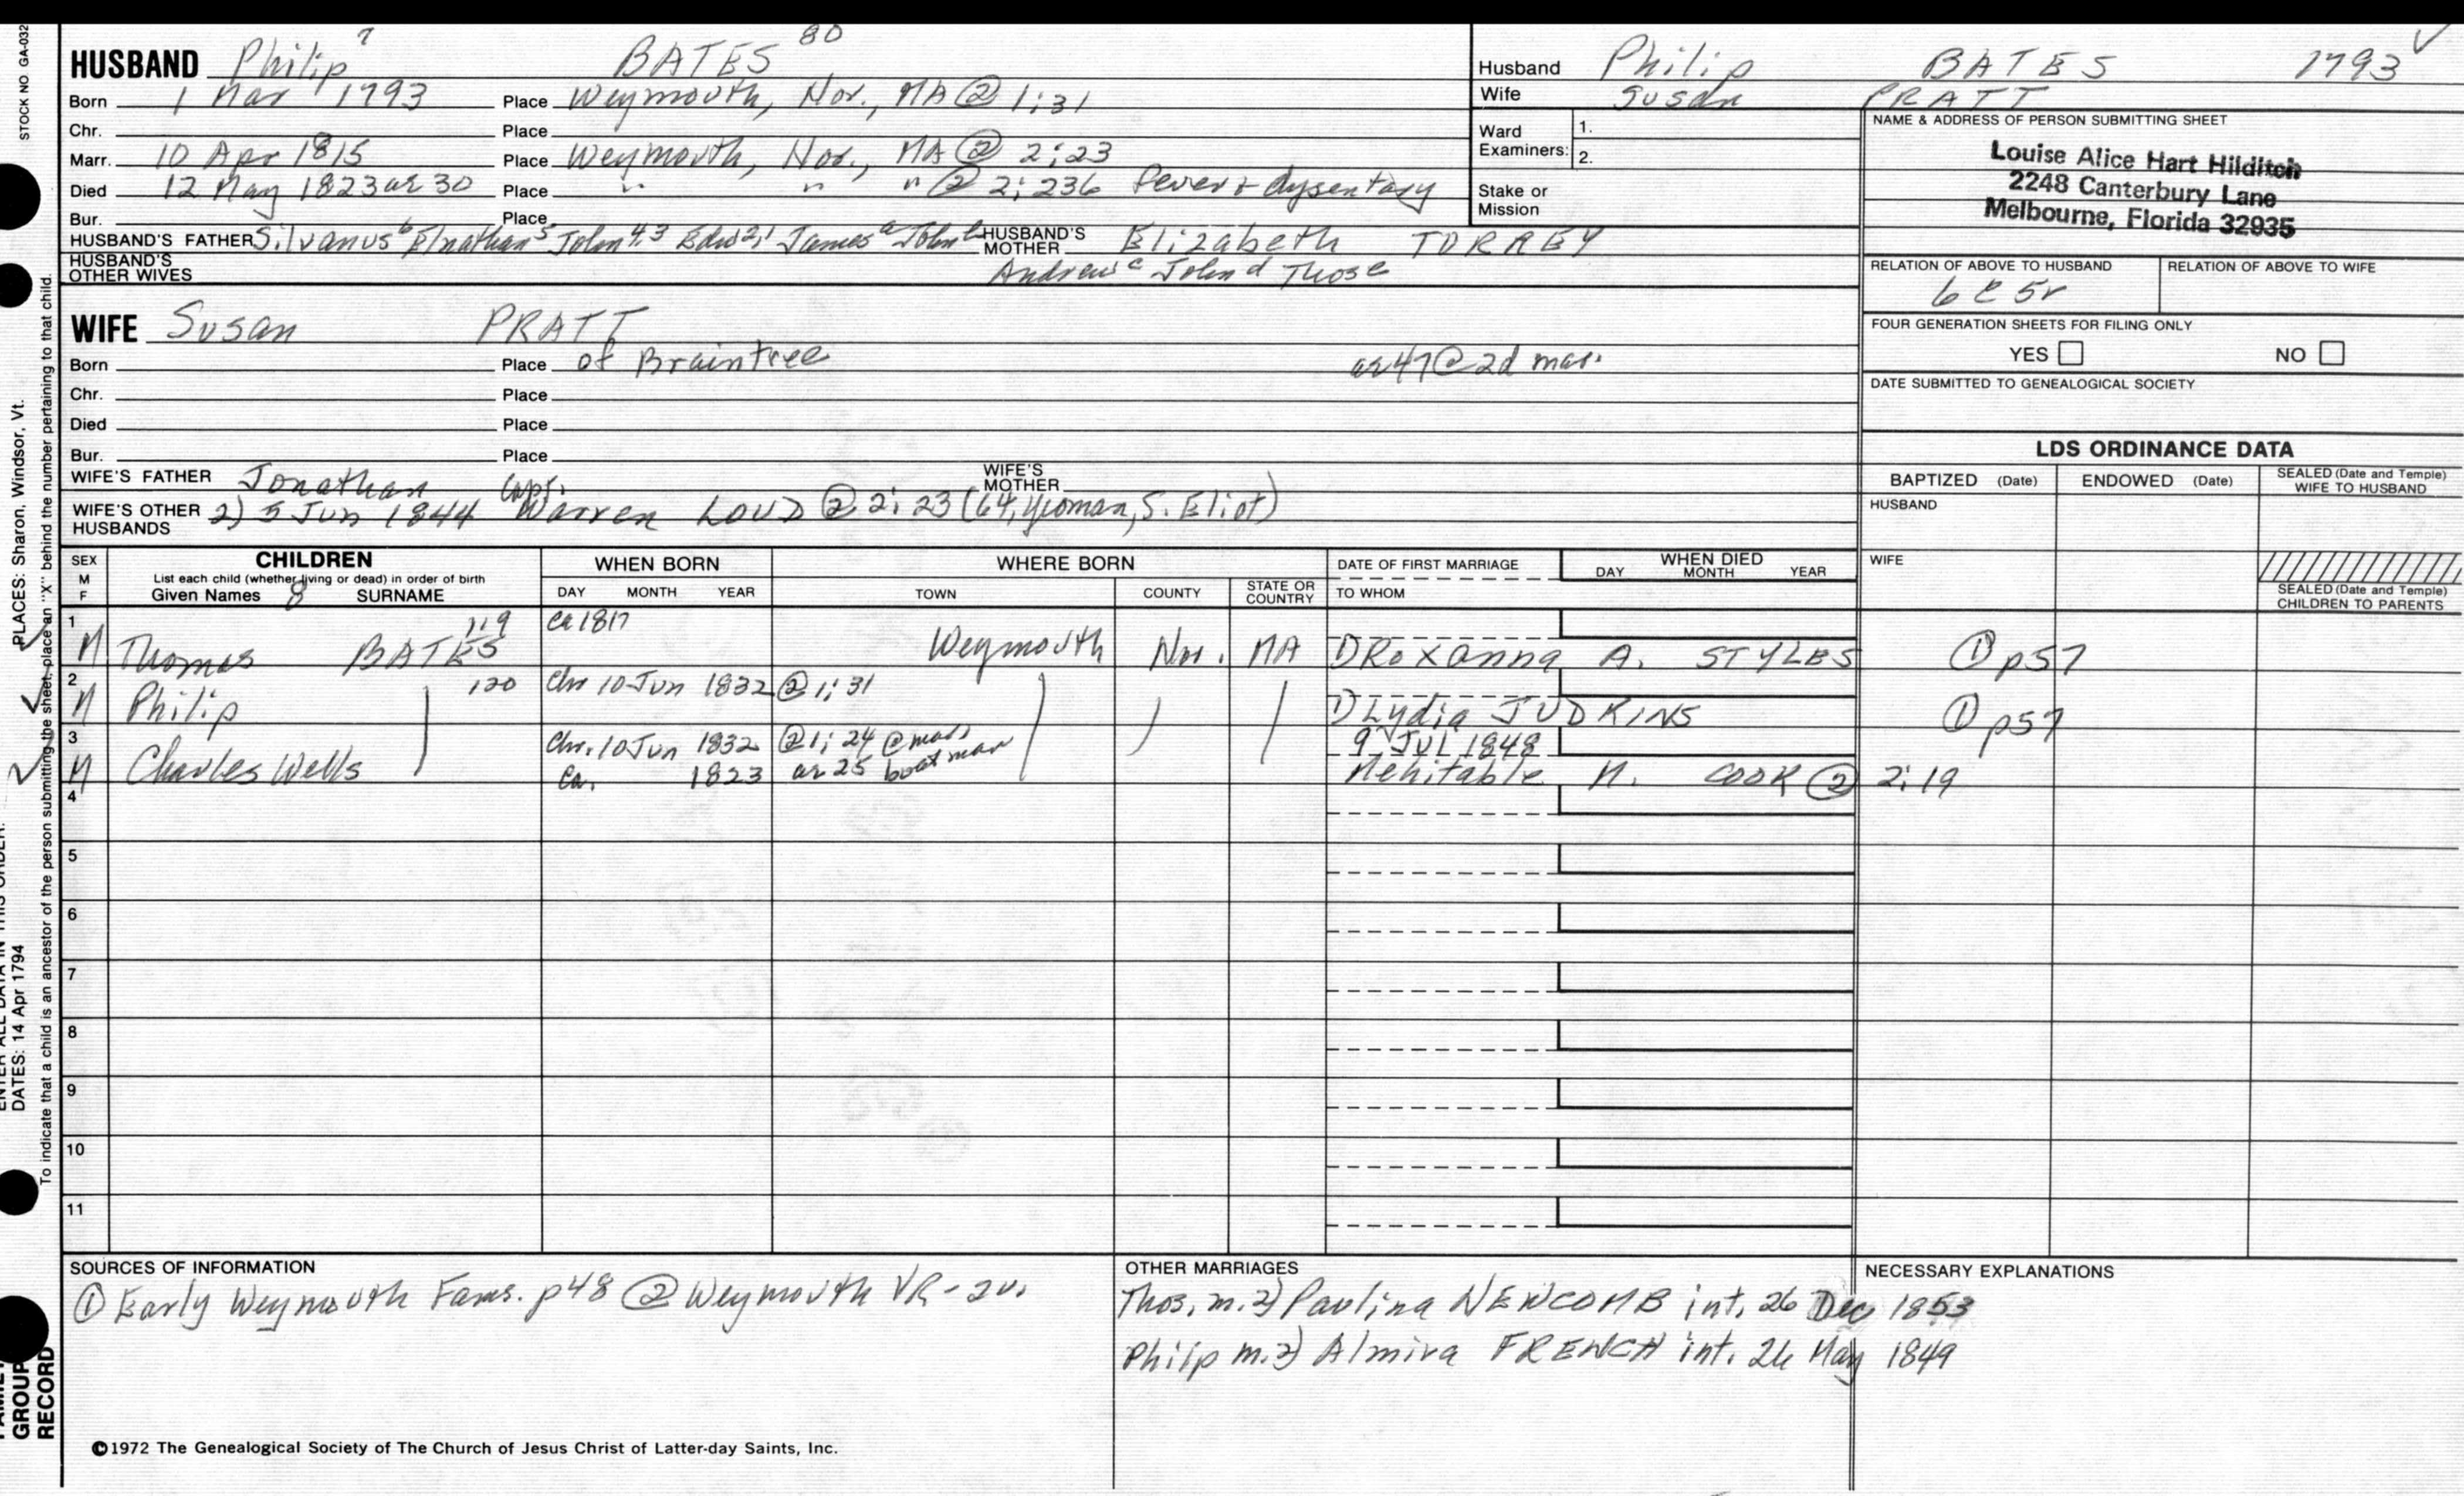 STOCK NO GA-032
HUSBAND Philip 7 BATES 80
Born 1 Mar 1793 Place Weymouth, Nor., MA @ 1:31
Chr. Place
Marr. 10 Apr 1815 Place Weymouth, Nor., MA @ 2:23
Died 12 May 1823 ae 30 Place " " " @ 2:236 fever & dysentary
Bur. Place
HUSBAND'S FATHER Silvanus 6 Elnathan 5 John 4,3 Edw 2,1 James a John b HUSBAND'S MOTHER Elizabeth TORREY
HUSBAND'S OTHER WIVES Andrew c John d Thos e
WIFE Susan PRATT
Born Place of Braintree ae 47 @ 2d mar.
Chr. Place
Died Place
Bur. Place
WIFE'S FATHER Jonathan WIFE'S MOTHER
WIFE'S OTHER HUSBANDS 2) 5 Jun 1844 Capt. Warren LOUD @ 2:23 (64, yeoman, S. Eliot)
Husband Philip BATES 1793 ✓
Wife Susan PRATT
Ward Examiners: 1.
2.
Stake or Mission
NAME & ADDRESS OF PERSON SUBMITTING SHEET
Louise Alice Hart Hilditch
2248 Canterbury Lane
Melbourne, Florida 32935
RELATION OF ABOVE TO HUSBAND RELATION OF ABOVE TO WIFE
6 c 5r
FOUR GENERATION SHEETS FOR FILING ONLY
YES NO
DATE SUBMITTED TO GENEALOGICAL SOCIETY
LDS ORDINANCE DATA
BAPTIZED (Date) ENDOWED (Date) SEALED (Date and Temple) WIFE TO HUSBAND
HUSBAND
WIFE
SEALED (Date and Temple) CHILDREN TO PARENTS
SEX M F CHILDREN WHEN BORN WHERE BORN DATE OF FIRST MARRIAGE WHEN DIED
List each child (whether living or dead) in order of birth
Given Names 8 SURNAME DAY MONTH YEAR TOWN COUNTY STATE OR COUNTRY TO WHOM DAY MONTH YEAR
1 M Thomas BATES 119 ca 1817 Weymouth Nor. MA 1) Roxanna A. STYLES ① p57
2 M Philip 120 Chr 10 Jun 1832 @ 1:31 1) Lydia JUDKINS ① p57
3 M Charles Wells Chr. 10 Jun 1832 @ 1:24 @ mar. 9 Jul 1848
ca. 1823 ae 25 boatman Mehitable N. COOK @ 2:19
4
5
6
7
8
9
10
11
SOURCES OF INFORMATION
① Early Weymouth Fams. p48 ② Weymouth VR - 2v.
OTHER MARRIAGES
Thos. m. 2) Paulina NEWCOMB int. 26 Dec 1853
Philp m. 2) Almira FRENCH int. 26 May 1849
NECESSARY EXPLANATIONS
©1972 The Genealogical Society of The Church of Jesus Christ of Latter-day Saints, Inc.
PLACES: Sharon, Windsor, Vt.
DATES: 14 Apr 1794
To indicate that a child is an ancestor of the person submitting the sheet, place an "X" behind the number pertaining to that child.
GROUP
RECORD